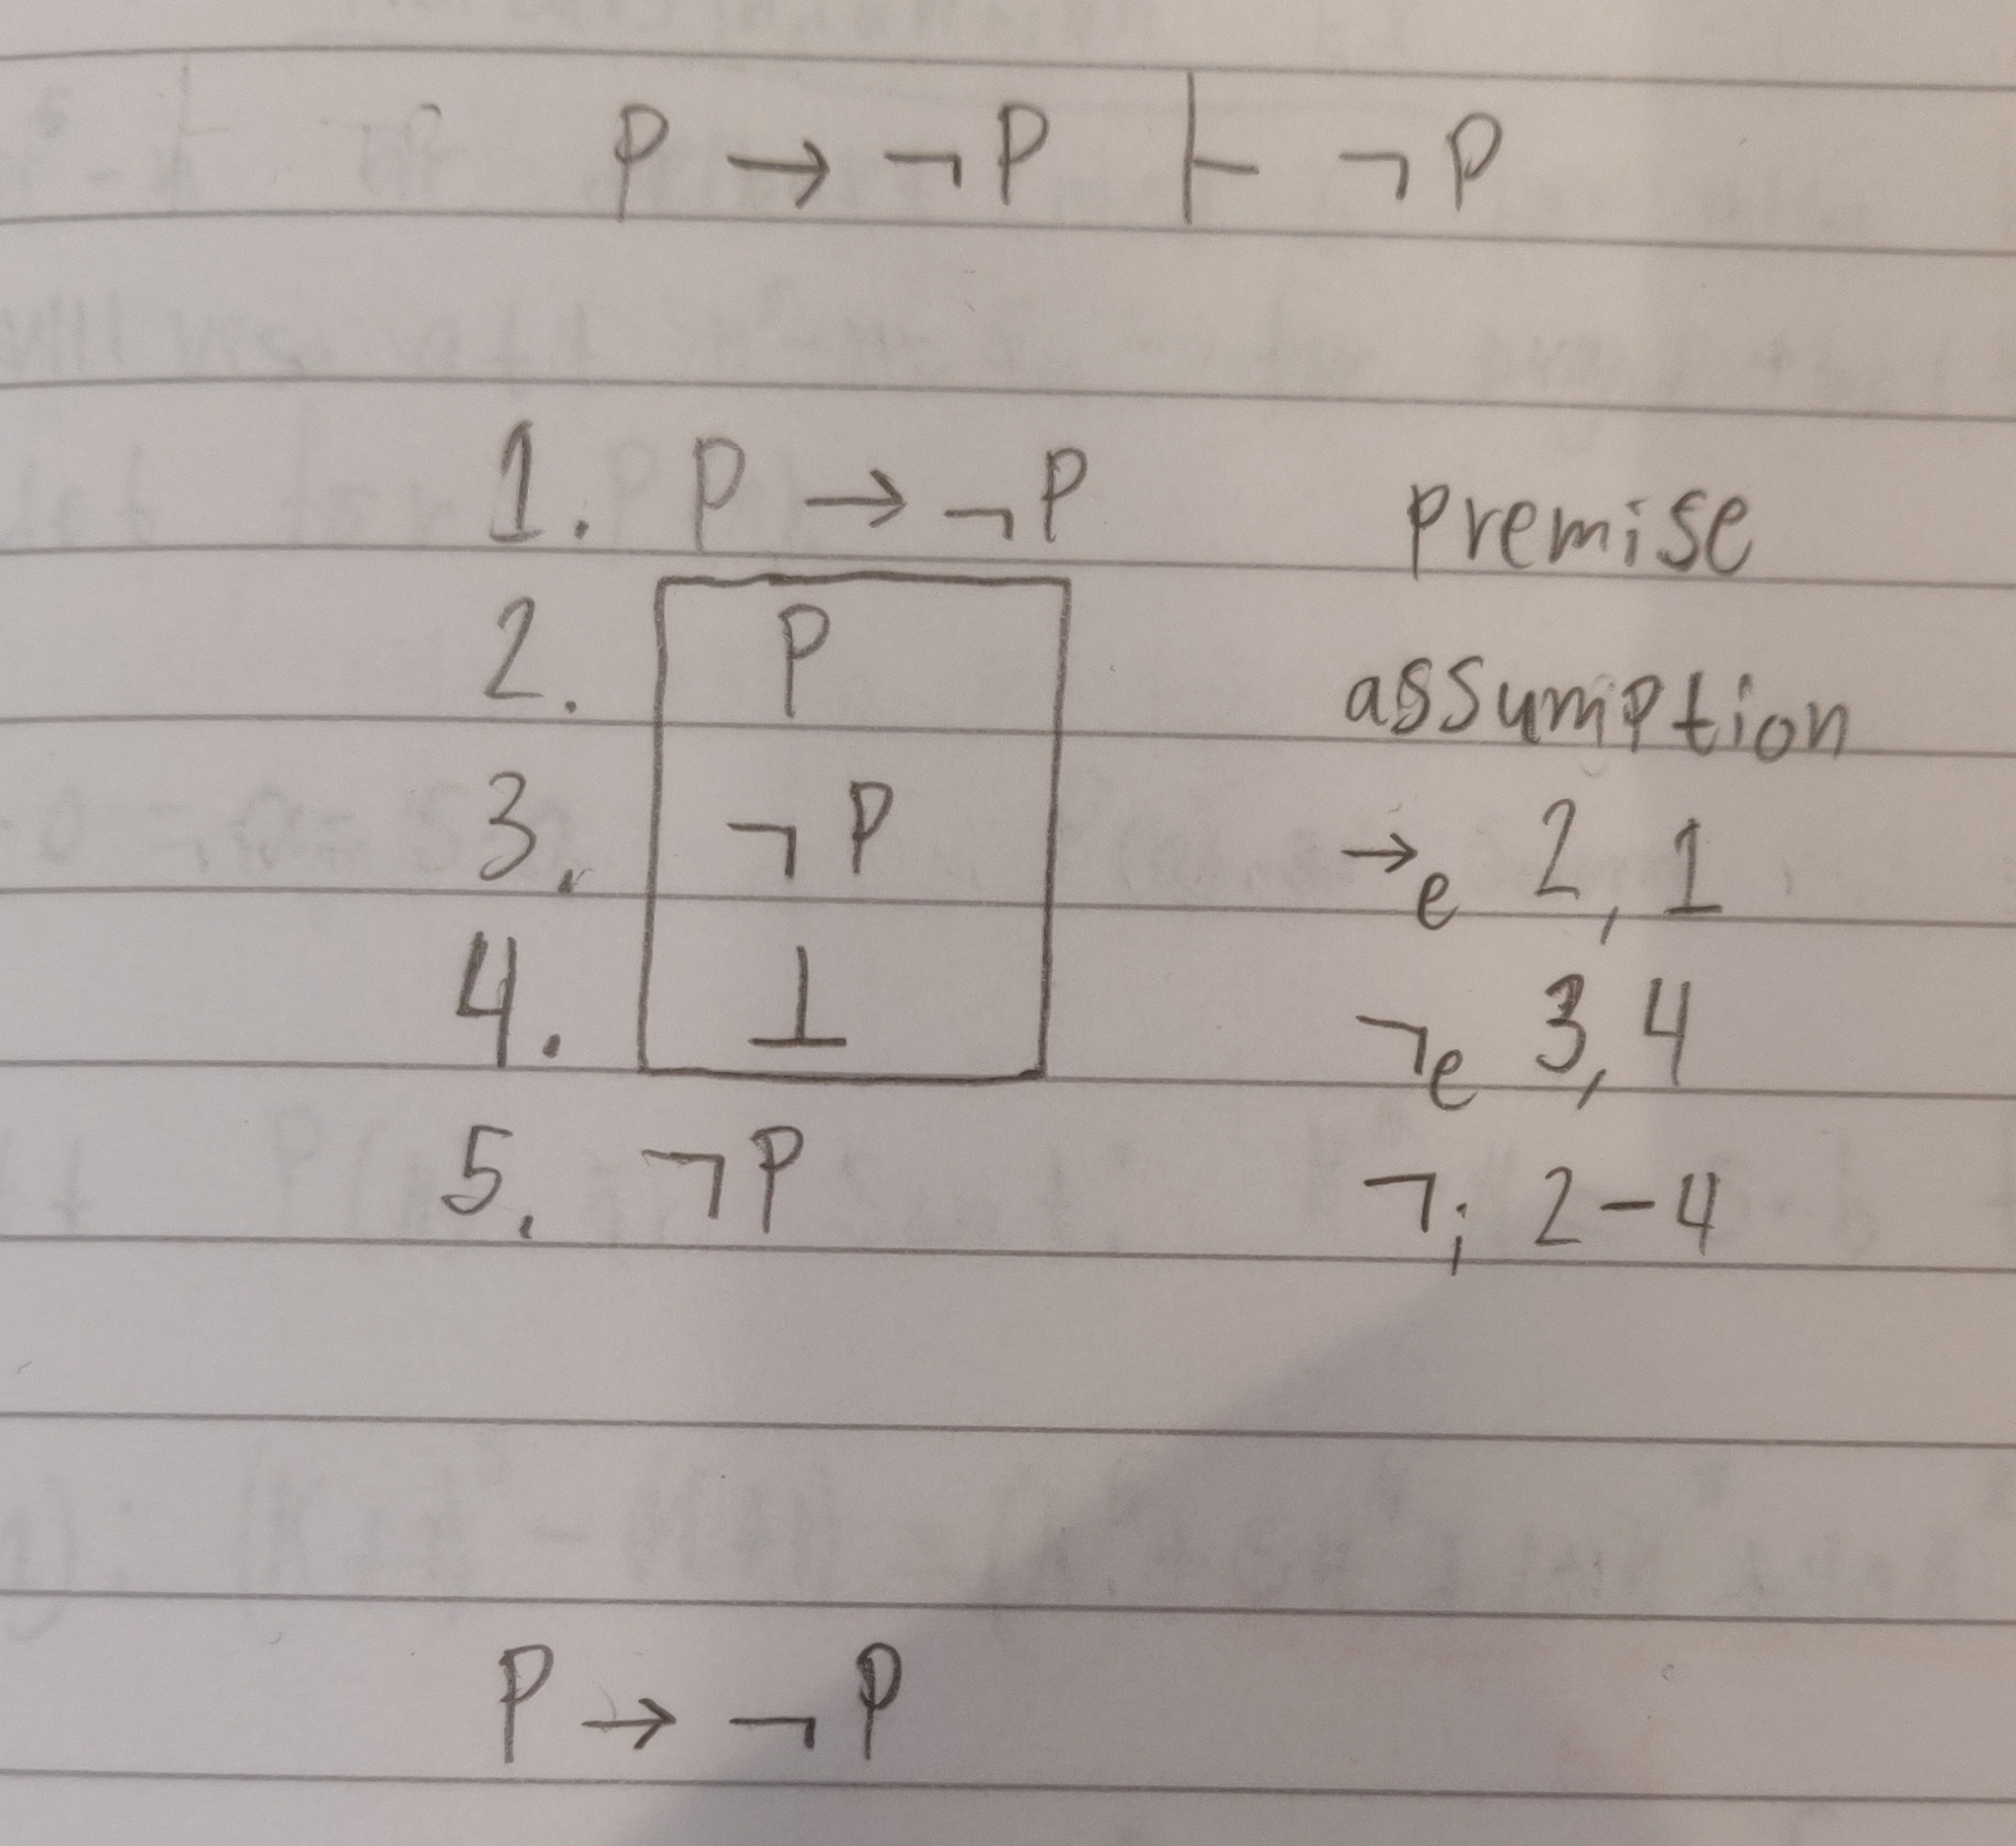 P → ¬P ⊢ ¬P
1. P → ¬P premise
2. P assumption
3. ¬P →e 2, 1
4. ⊥ ¬e 3, 4
5. ¬P ¬i 2-4
P → ¬P